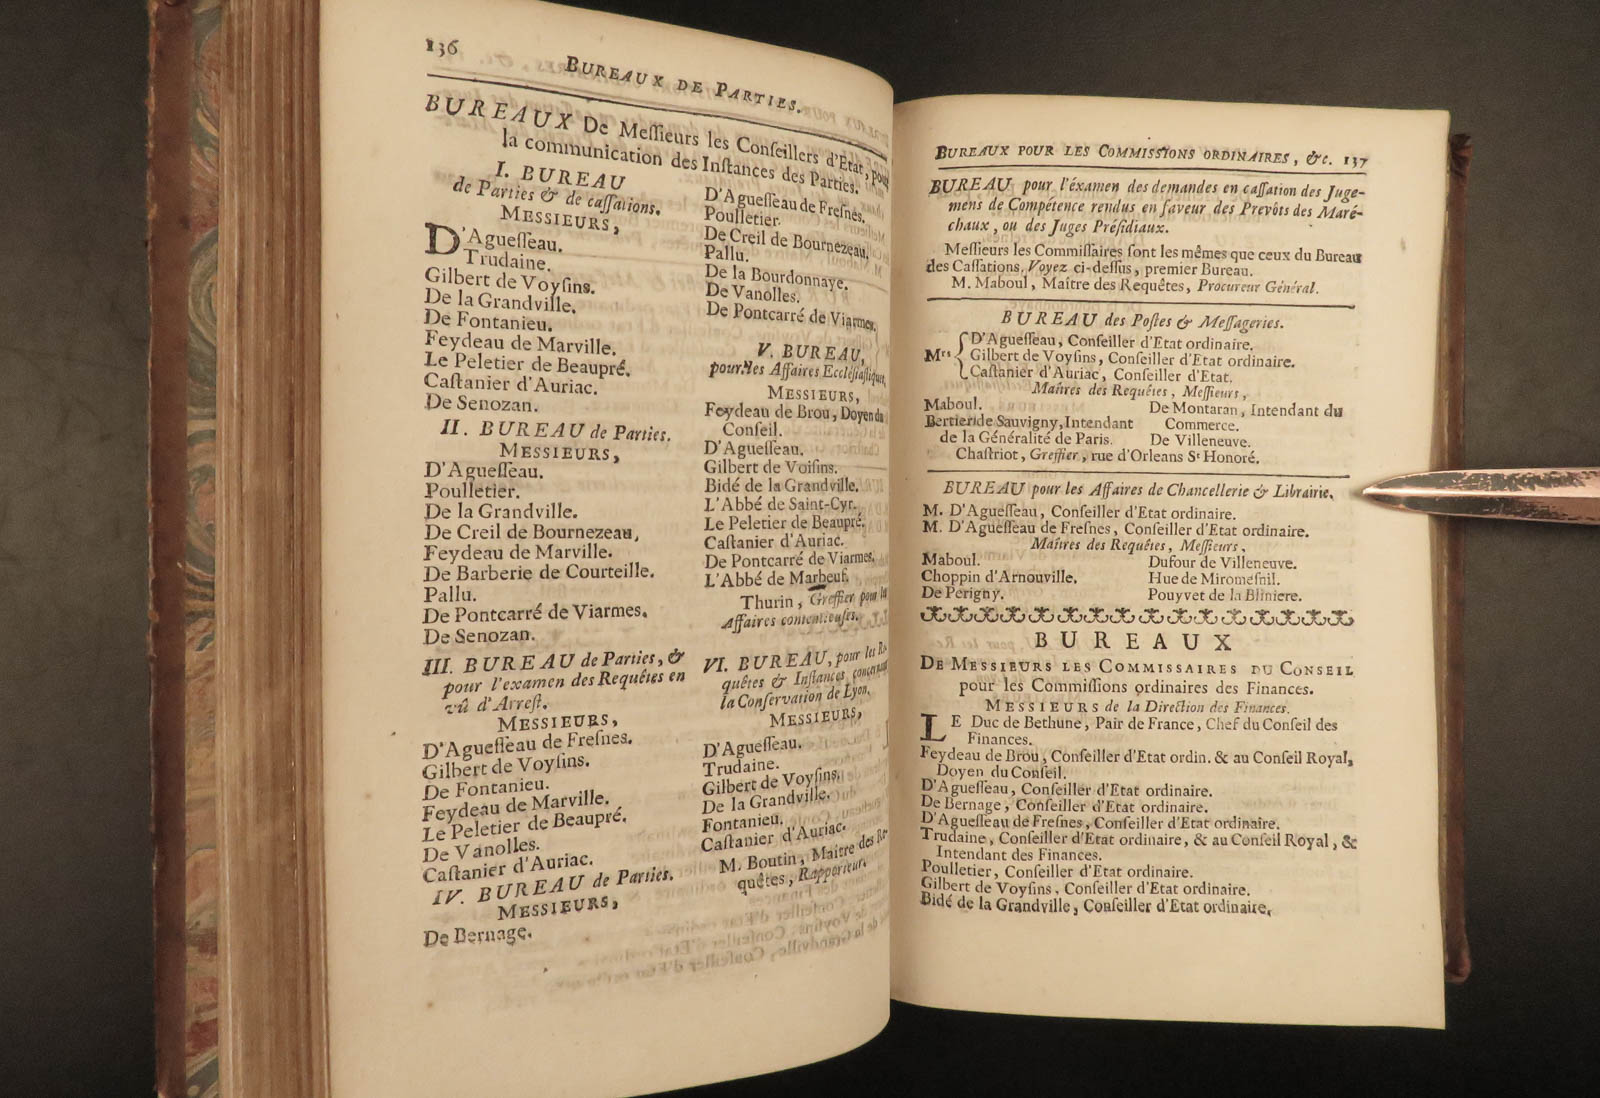 136
BUREAUX DE PARTIES.
BUREAUX De Meſſieurs les Conſeillers d'Etat, pour
la communication des Inſtances des Parties.
I. BUREAU
de Parties & de caſſations.
MESSIEURS,
D'Agueſſeau.
Trudaine.
Gilbert de Voyſins.
De la Grandville.
De Fontanieu.
Feydeau de Marville.
Le Peletier de Beaupré.
Caſtanier d'Auriac.
De Senozan.
II. BUREAU de Parties.
MESSIEURS,
D'Agueſſeau.
Poulletier.
De la Grandville.
De Creil de Bournezeau,
Feydeau de Marville.
De Barberie de Courteille.
Pallu.
De Pontcarré de Viarmes.
De Senozan.
III. BUREAU de Parties, &
pour l'examen des Requêtes en
vû d'Arreſt.
MESSIEURS,
D'Agueſſeau de Freſnes.
Gilbert de Voyſins.
De Fontanieu.
Feydeau de Marville.
Le Peletier de Beaupré.
De Vanolles.
Caſtanier d'Auriac.
IV. BUREAU de Parties.
MESSIEURS,
De Bernage.
D'Agueſſeau de Freſnes.
Poulletier.
De Creil de Bournezeau,
Pallu.
De la Bourdonnaye.
De Vanolles.
De Pontcarré de Viarmes.
V. BUREAU,
pour les Affaires Eccléſiaſtiques,
MESSIEURS,
Feydeau de Brou, Doyen du
Conſeil.
D'Agueſſeau.
Gilbert de Voiſins.
Bidé de la Grandville.
L'Abbé de Saint-Cyr.
Le Peletier de Beaupré.
Caſtanier d'Auriac.
De Pontcarré de Viarmes.
L'Abbé de Marbeuf.
Thurin, Greffier pour les
Affaires contentieuſes.
VI. BUREAU, pour les Re-
quêtes & Inſtances concernant
la Conſervation de Lyon.
MESSIEURS,
D'Agueſſeau.
Trudaine.
Gilbert de Voyſins.
De la Grandville.
Fontanieu.
Caſtanier d'Auriac.
M. Boutin, Maître des Re-
quêtes, Rapporteur.
BUREAUX POUR LES COMMISSIONS ORDINAIRES, &c. 137
BUREAU pour l'éxamen des demandes en caſſation des Juge-
mens de Compétence rendus en faveur des Prevôts des Maré-
chaux, ou des Juges Préſidiaux.
Meſſieurs les Commiſſaires ſont les mêmes que ceux du Bureau
des Caſſations, Voyez ci-deſſus, premier Bureau.
M. Maboul, Maître des Requêtes, Procureur Général.
BUREAU des Poſtes & Meſſageries.
Mrs { D'Agueſſeau, Conſeiller d'Etat ordinaire.
Gilbert de Voyſins, Conſeiller d'Etat ordinaire.
Caſtanier d'Auriac, Conſeiller d'Etat.
Maîtres des Requêtes, Meſſieurs,
Maboul.
Bertier de Sauvigny, Intendant
de la Généralité de Paris.
De Montaran, Intendant du
Commerce.
De Villeneuve.
Chaſtriot, Greffier, rue d'Orleans St Honoré.
BUREAU pour les Affaires de Chancellerie & Librairie.
M. D'Agueſſeau, Conſeiller d'Etat ordinaire.
M. D'Agueſſeau de Freſnes, Conſeiller d'Etat ordinaire.
Maîtres des Requêtes, Meſſieurs,
Maboul.
Choppin d'Arnouville.
De Perigny.
Dufour de Villeneuve.
Hue de Miromeſnil.
Pouyvet de la Bliniere.
BUREAUX
DE MESSIEURS LES COMMISSAIRES DU CONSEIL
pour les Commiſſions ordinaires des Finances.
MESSIEURS de la Direction des Finances.
LE Duc de Bethune, Pair de France, Chef du Conſeil des
Finances.
Feydeau de Brou, Conſeiller d'Etat ordin. & au Conſeil Royal,
Doyen du Conſeil.
D'Agueſſeau, Conſeiller d'Etat ordinaire.
De Bernage, Conſeiller d'Etat ordinaire.
D'Agueſſeau de Freſnes, Conſeiller d'Etat ordinaire.
Trudaine, Conſeiller d'Etat ordinaire, & au Conſeil Royal, &
Intendant des Finances.
Poulletier, Conſeiller d'Etat ordinaire.
Gilbert de Voyſins, Conſeiller d'Etat ordinaire.
Bidé de la Grandville, Conſeiller d'Etat ordinaire,